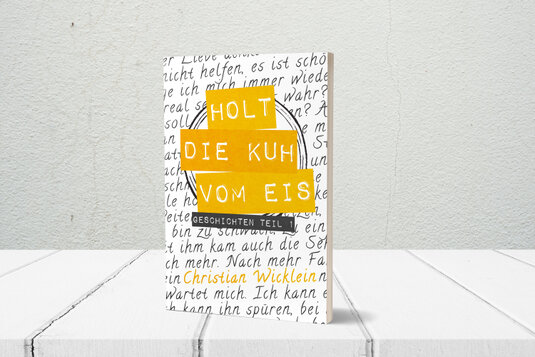 er Liebe
nicht helfen, es ist schö
ge ich mich immer wiede
real se wahr?
soll n? A
HOLT
DIE KUH
VOM EIS
GESCHICHTEN TEIL 1
bin zu schwach. zu ein
t ihm kam auch die Seh
ch mehr. Nach mehr Fa
ein Christian Wicklein n
wartet mich. Ich kann e
kann ihn spüren, bei